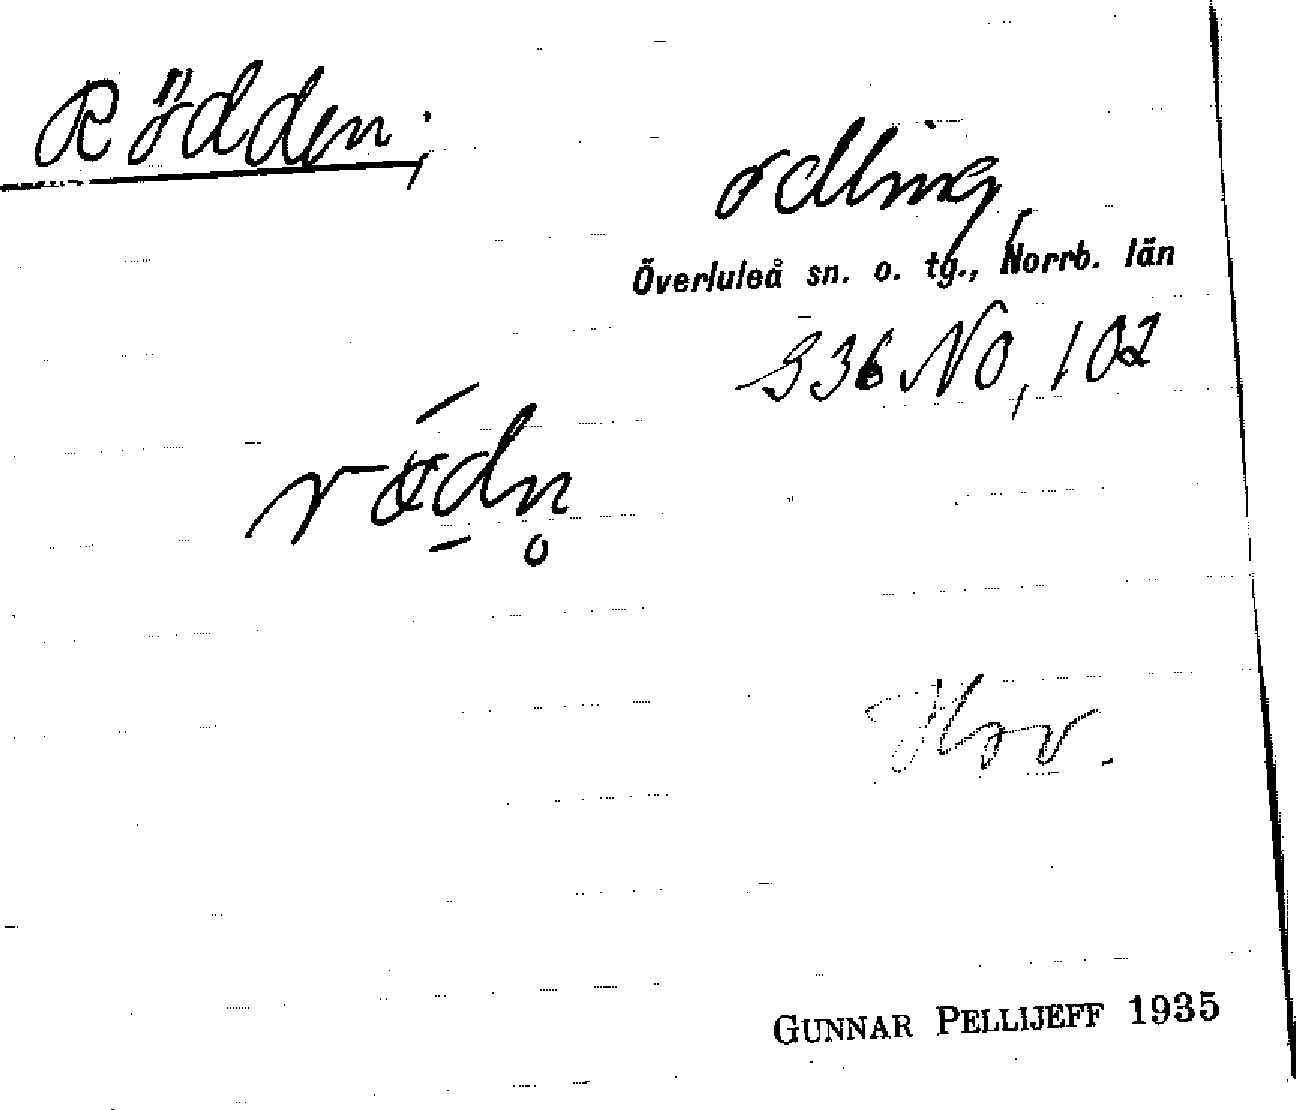 Rödden,
odling
Överluleå sn. o. tg., Norrb. län
S36 NO, 102
rödn̥
GUNNAR PELLIJEFF 1935